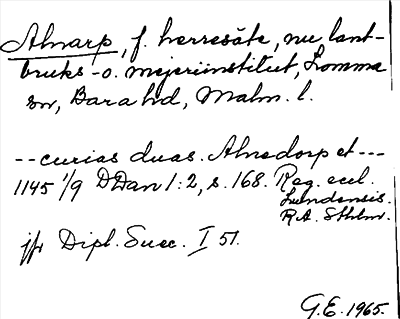 Alnarp, f. herresäte, nu lant-
bruks- o. mejeriinstitut, Lomma
sn, Bara hd, Malm. l.
-- curias duas. Alnedorp et ---
1145 1/9 DDan 1:2, s. 168. Reg. eccl.
Lundensis.
R.A. Sthlm.
jfr Dipl. Suec. I 51.
G.E. 1965.